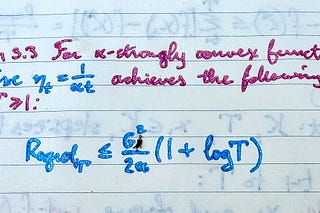 3.3 For α-strongly convex funct
η_t = 1/αt achieves the following
T ≥ 1:
Regret_T ≤ G²/2α (1 + log T)